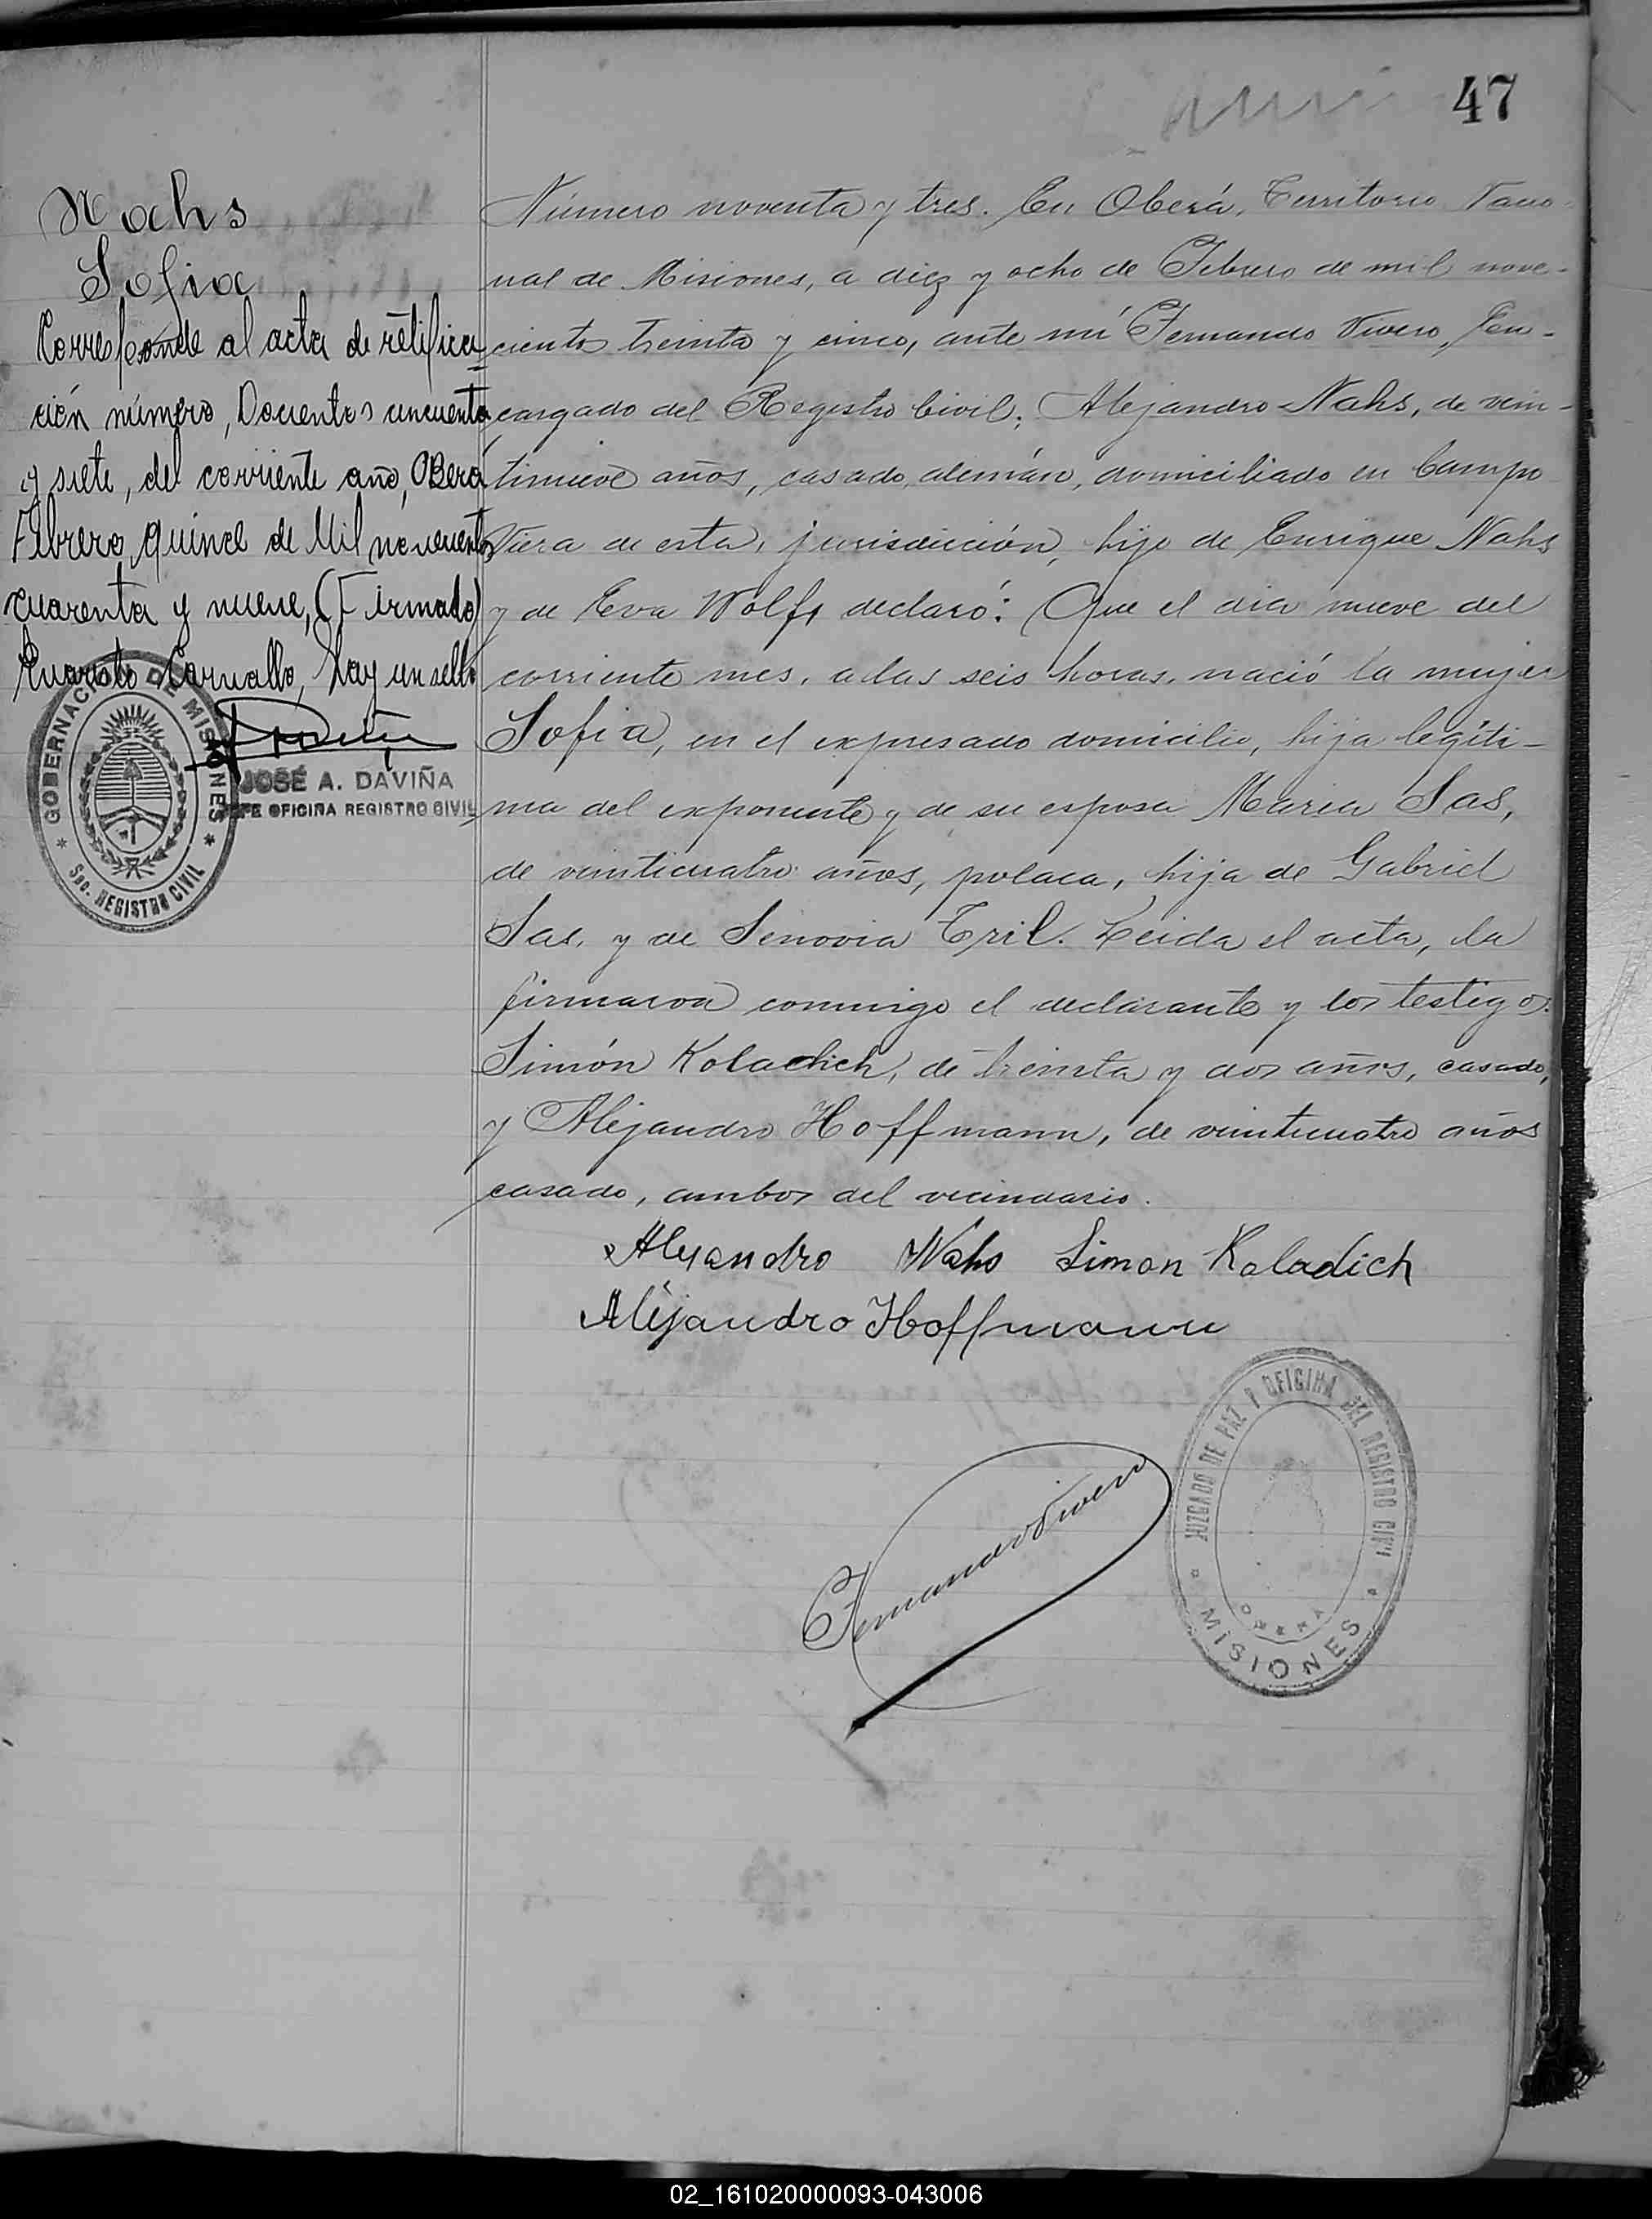 47
Nahs
Sofia
Corresponde al acta de retifica
ción número, Docientos cincuenta
y siete, del corriente año, Oberá
Febrero, quince de Mil novecientos
cuarenta y nueve, (Firmado)
Evaristo Carvallo, hay un sello
GOBERNACION DE MISIONES
Sec. REGISTRO CIVIL
JOSÉ A. DAVIÑA
JEFE OFICINA REGISTRO CIVIL
Número noventa y tres. En Oberá, Territorio Nacio-
nal de Misiones, a diez y ocho de Febrero de mil nove-
cientos treinta y cinco, ante mí Fernando Vivero, En-
cargado del Registro Civil; Alejandro Nahs, de vein-
tinueve años, casado, alemán, domiciliado en Campo
Viera de esta, jurisdicción, hijo de Enrique Nahs
y de Eva Wolf, declaró: Que el dia nueve del
corriente mes, a las seis horas, nació la mujer
Sofia, en el expresado domicilio, hija legíti-
ma del exponente y de su esposa Maria Sas,
de veinticuatro años, polaca, hija de Gabriel
Sas, y de Senovia Tril. Leida el acta, la
firmaron conmigo el declarante y los testigos:
Simón Koladich, de treinta y dos años, casado,
y Alejandro Hoffmann, de veinticuatro años
casado, ambos del vecindario.
Alejandro Nahs Simon Koladich
Alejandro Hoffmann
Fernando Vivero
JUZGADO DE PAZ Y OFICINA DEL REGISTRO CIVIL
OBERA
MISIONES
02_161020000093-043006